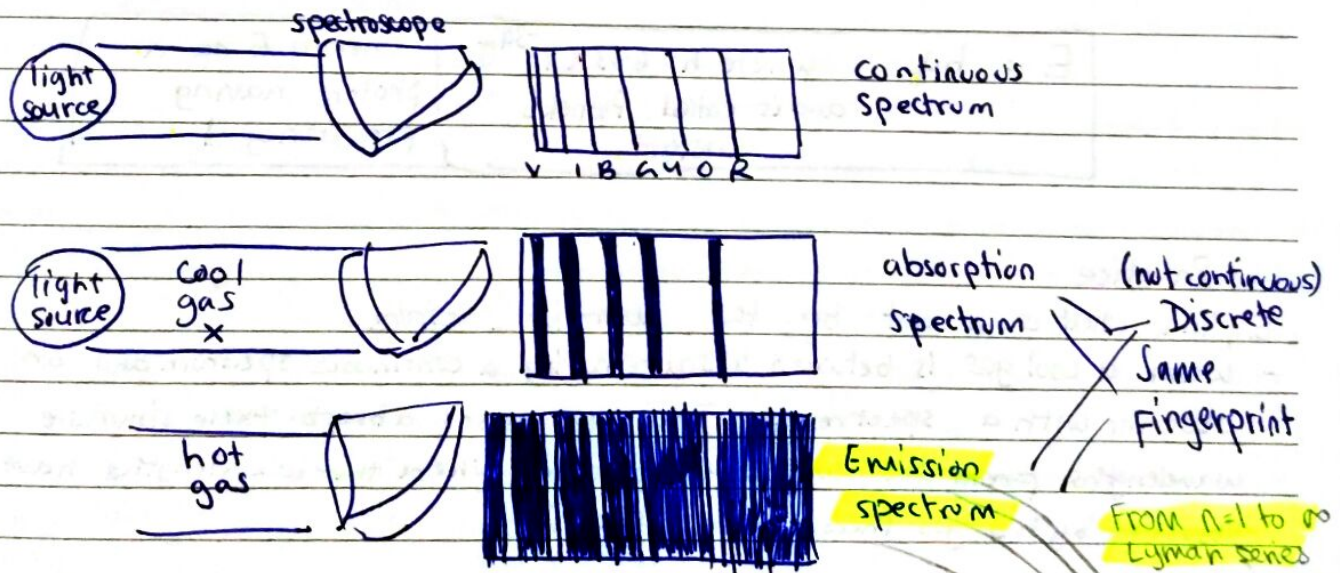 spectroscope
light
source
continuous
spectrum
V I B G Y O R
light
source
cool
gas
x
absorption
spectrum
(not continuous)
Discrete
Same
Fingerprint
hot
gas
Emission
spectrum
From n=1 to ∞
Lyman series